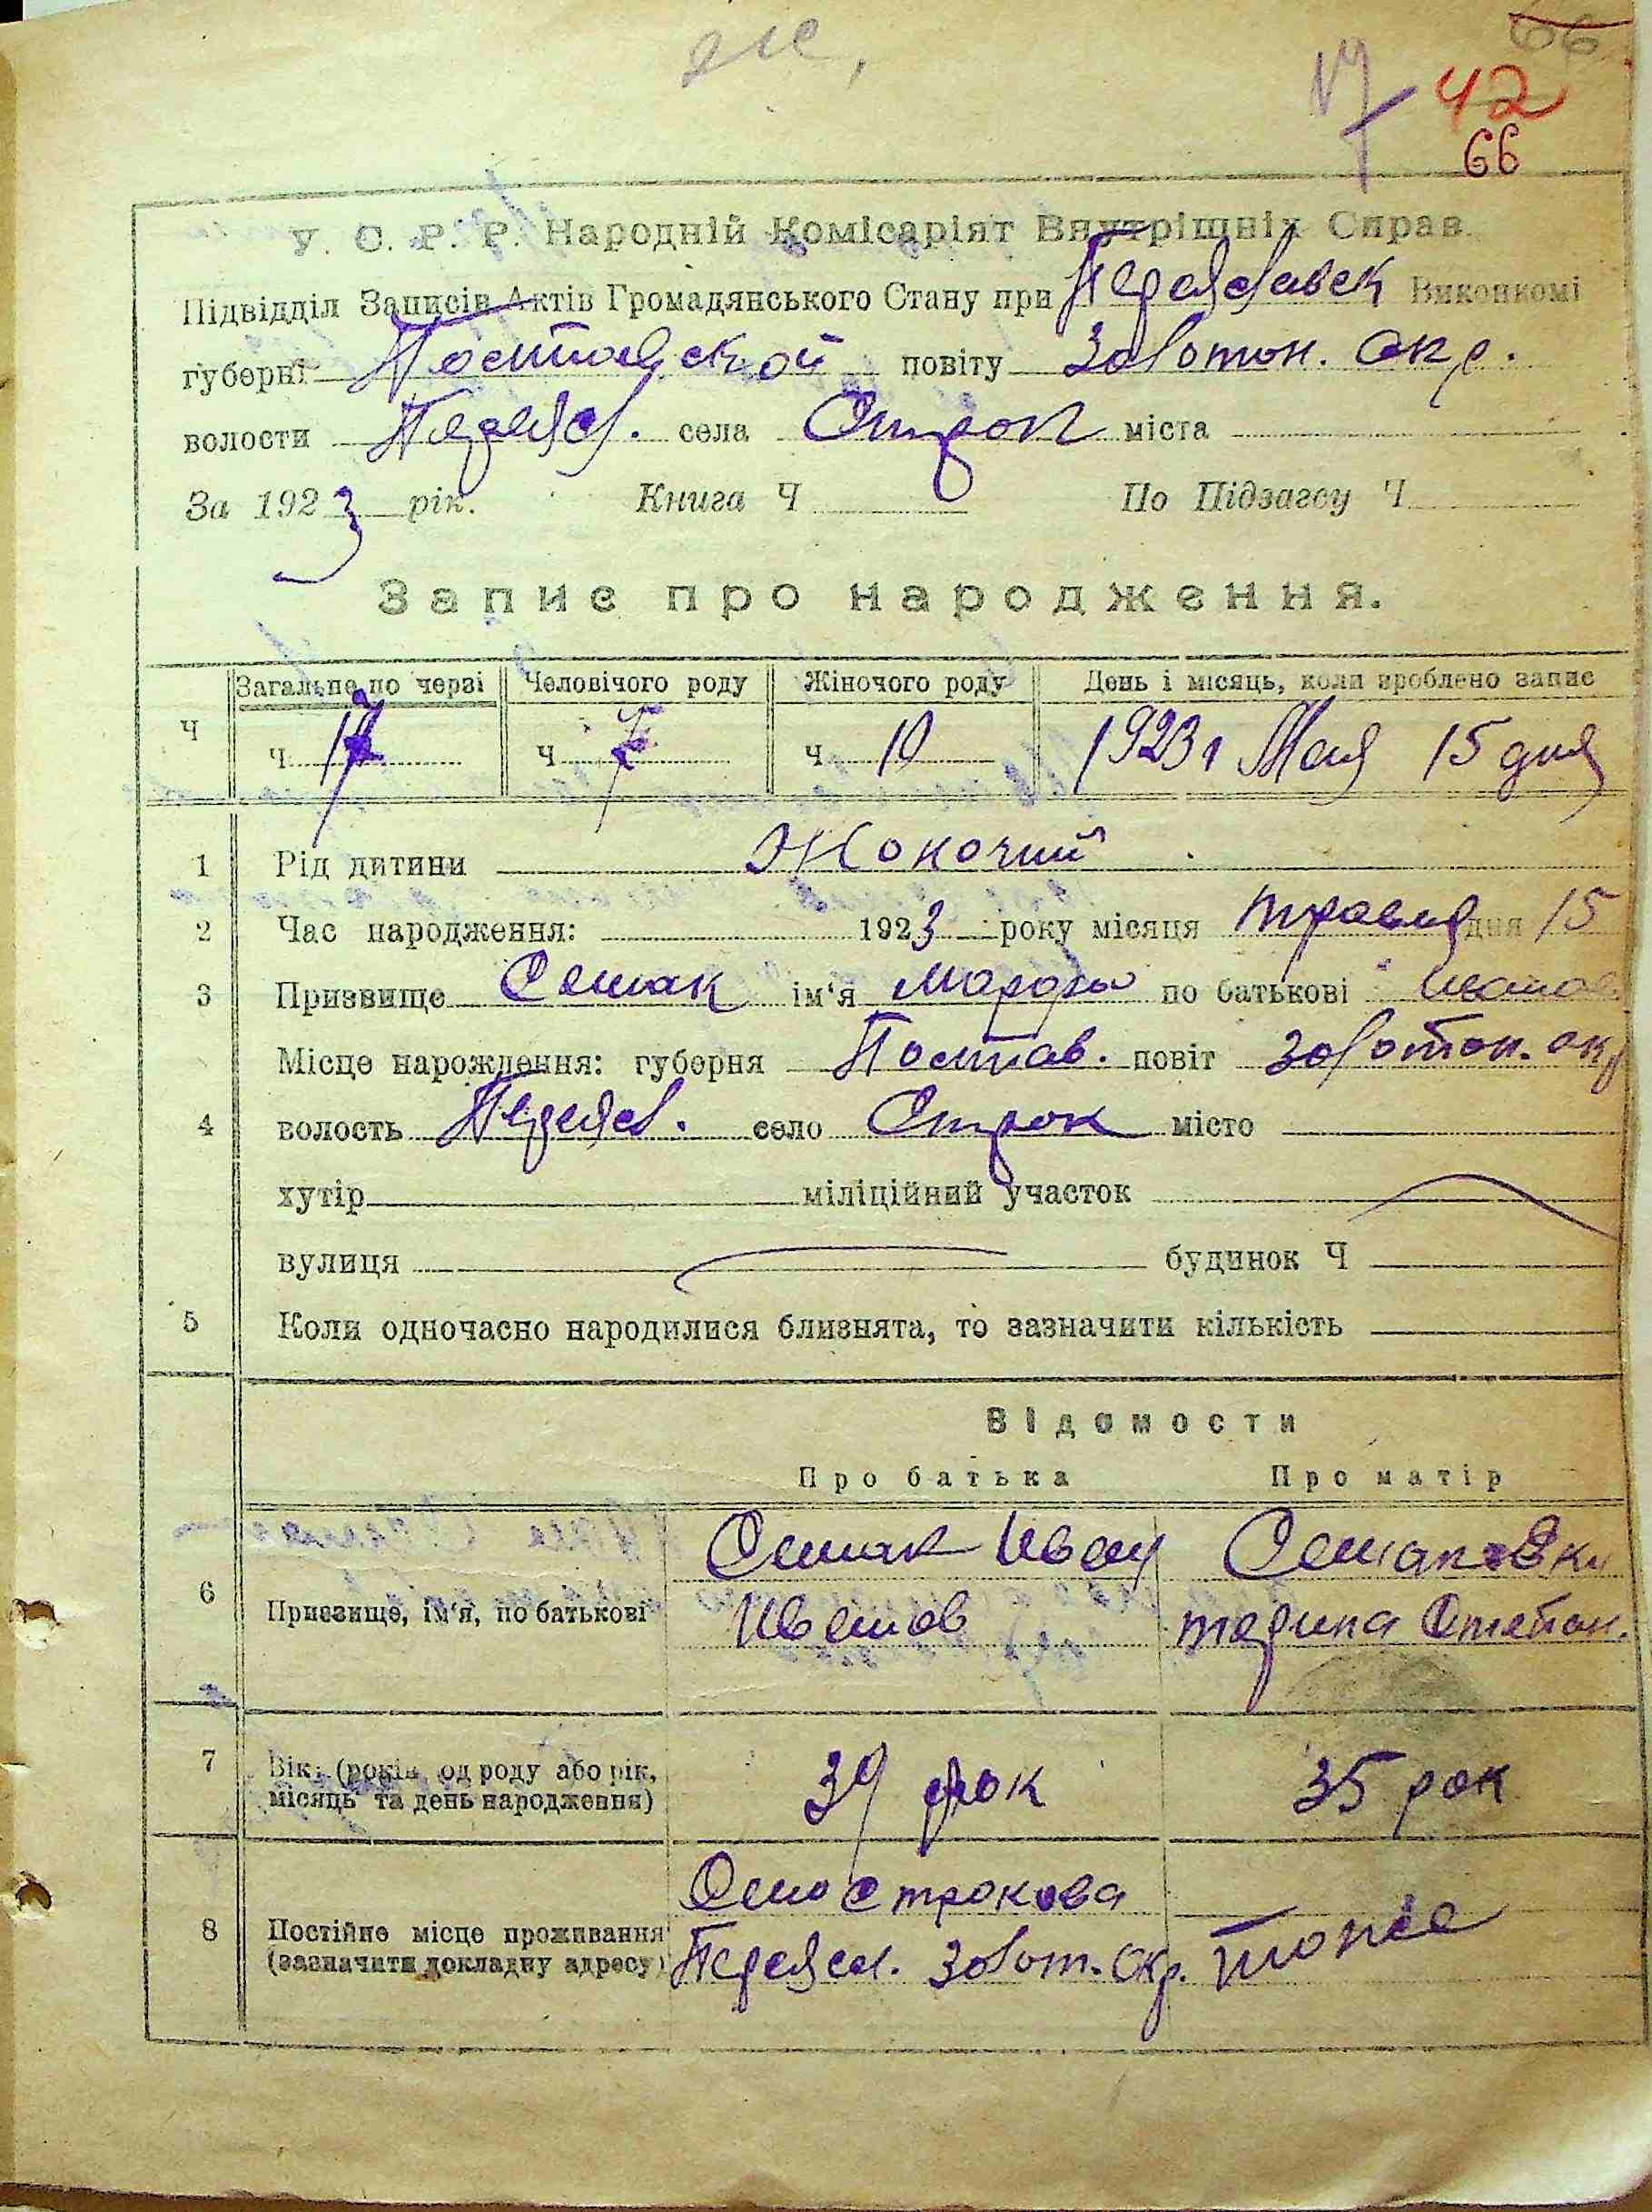 66
17 42
66
У. С. Р. Р. Народній Комісаріят Внутрішніх Справ.
Підвідділ Записів Актів Громадянського Стану при Переяславск Виконкомі
губерні Полтавской повіту Золотон. окр.
волости Переясл. села Строк міста
За 1923 рік. Книга Ч По Підзагсу Ч
Запис про народження.
Загальне по черзі Человічого роду Жіночого роду День і місяць, коли зроблено запис
Ч Ч 17 Ч 7 Ч 10 1923 г Мая 15 дня
1 Рід дитини Жоночий
2 Час народження: 1923 року місяця травля дня 15
3 Призвище Сешак ім'я по батькові Иванов
Місце нарождення: губерня Полтав. повіт Золотон. окр
4 волость Переясл. село Строк місто
хутір міліційний участок
вулиця будинок Ч
5 Коли одночасно народилися близнята, то зазначити кількість
Відомости
Про батька Про матір
Сешак Иван
6 Призвище, ім'я, по батькові Иванов Степан.
7 Вік: (років од роду або рік, місяць та день народження) 39 рок 35 рок
8 Постійне місце проживання (зазначити докладну адресу) Строкова
Переясл. Золот. Окр. тоже